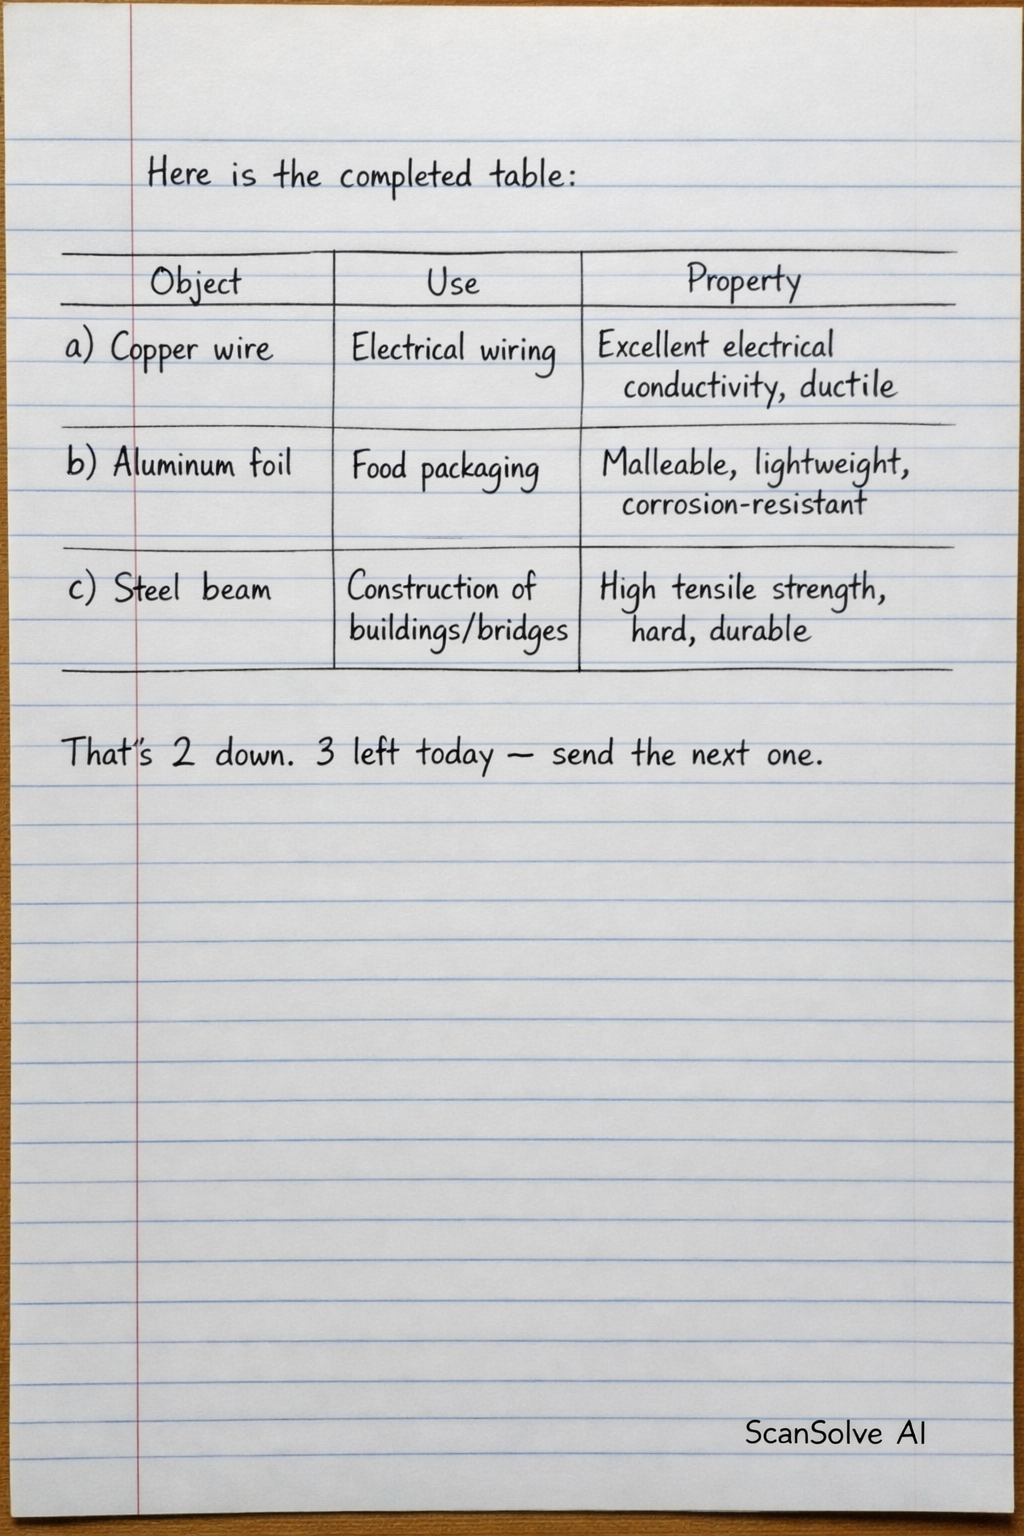 Here is the completed table:
Object Use Property
a) Copper wire Electrical wiring Excellent electrical
conductivity, ductile
b) Aluminum foil Food packaging Malleable, lightweight,
corrosion-resistant
c) Steel beam Construction of High tensile strength,
buildings/bridges hard, durable
That's 2 down. 3 left today — send the next one.
ScanSolve AI